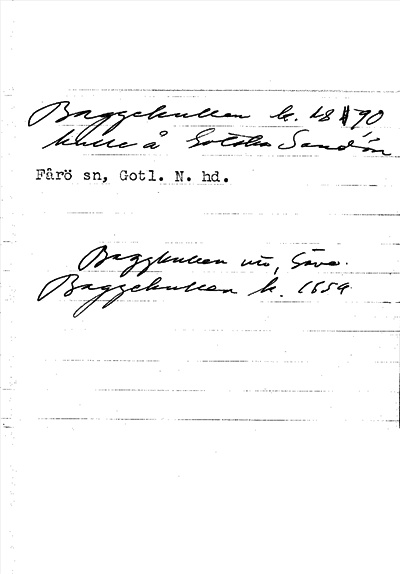 Baggekullen k. 1890
kulle å Gotska Sandön
Fårö sn, Gotl. N. hd.
Baggkullen uö, Säve.
Baggekullen k. 1859